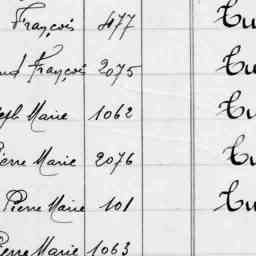 François 477 Tu
nd François 2075 Tu
seph Marie 1062 Tu
Pierre Marie 2076 Tu
Pierre Marie 101 Tu
Pierre Marie 1063